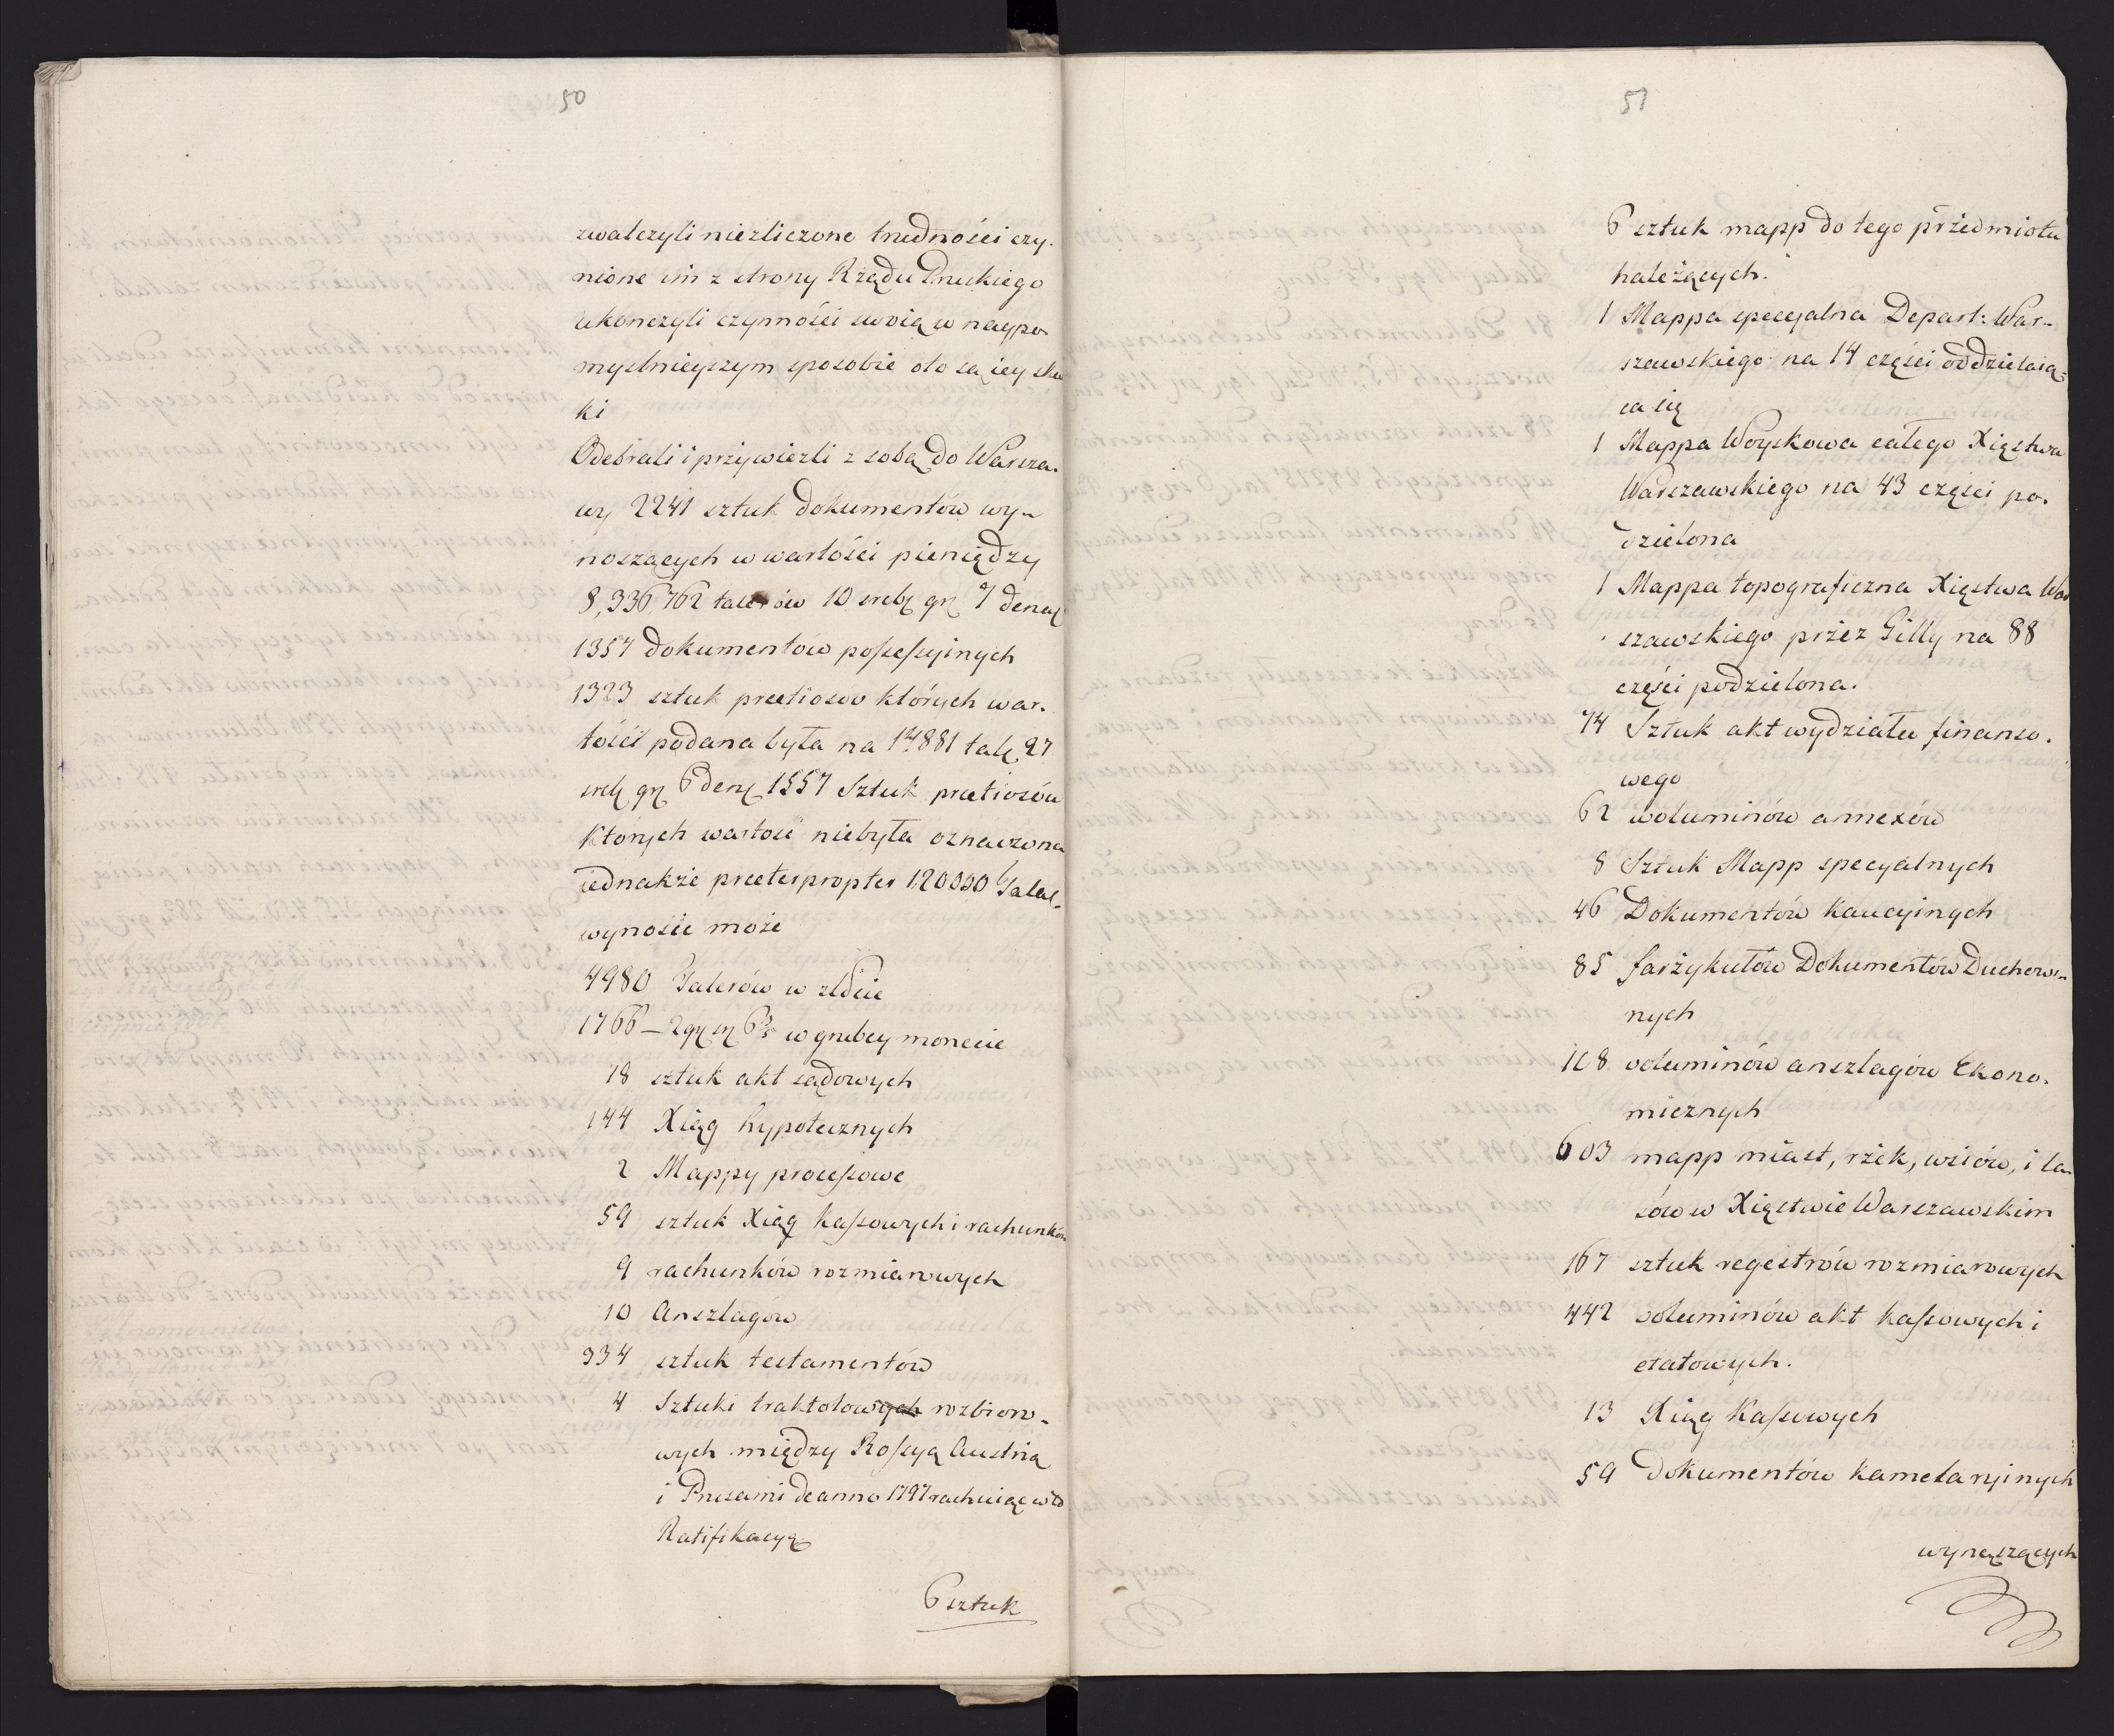 50
zwalczyli niezliczone trudności czy-
nione im z strony Rządu Pruskiego
ukonczyli czynności swoią w naypo-
myslnieyszym sposobie oto są iey sku
ki
Odebrali i przywiezli z sobą do Warsza-
wy 2241 sztuk dokumentów wy-
noszących w wartości pieniędzy
8,336,762 talerów 10 srebr gr 7 denar
1357 dokumentów possessyinych
1323 sztuk pretiosow których war-
tość podana była na 14881 tal 27
sreb gr 6 den 1557 Sztuk pretiosów
których wartość niebyła oznaczona
iednakże preeterpropter 120000 Talar-
wynosić może
4980 Talerów w złocie
1766 – 2 gr 6 w grubey monecie
18 sztuk akt sądowych
144 Xiąg hypotecznych
2 Mappy processowe
59 sztuk Xiąg kassowych i rachunków
9 rachunków rozmiarowych
10 Anszlagów
934 sztuk testamentów
4 Sztuki traktatowych rozbioro-
wych między Rossyą Austrią
i Prusami de anno 1797 rachuiąc w to
Ratifikacyą
6 sztuk
51
6 sztuk mapp do tego przedmiotu
należących.
1 Mappa specyalna Depart: War-
szawskiego na 14 części oddzielaią-
ca się
1 Mappa Woyskowa całego Xięstwa
Warszawskiego na 43 części po-
dzielona
1 Mappa topograficzna Xięstwa War
szawskiego przez Gilly na 88
części podzielona.
74 Sztuk akt wydziału finanso-
wego
62 woluminów annexów
8 Sztuk Mapp specyalnych
46 Dokumentów kaucyinych
85 farzykułów Dokumentów Duchow-
nych
108 voluminów anszlagów Ekono-
micznych
603 mapp miast, rzek, wsiów, i la-
sów w Xięstwie Warszawskim
167 sztuk regestrów rozmiarowych
442 voluminów akt kassowych i
etatowych.
13 Xiąg Kassowych
59 Dokumentów kamelaryinych
wynoszących